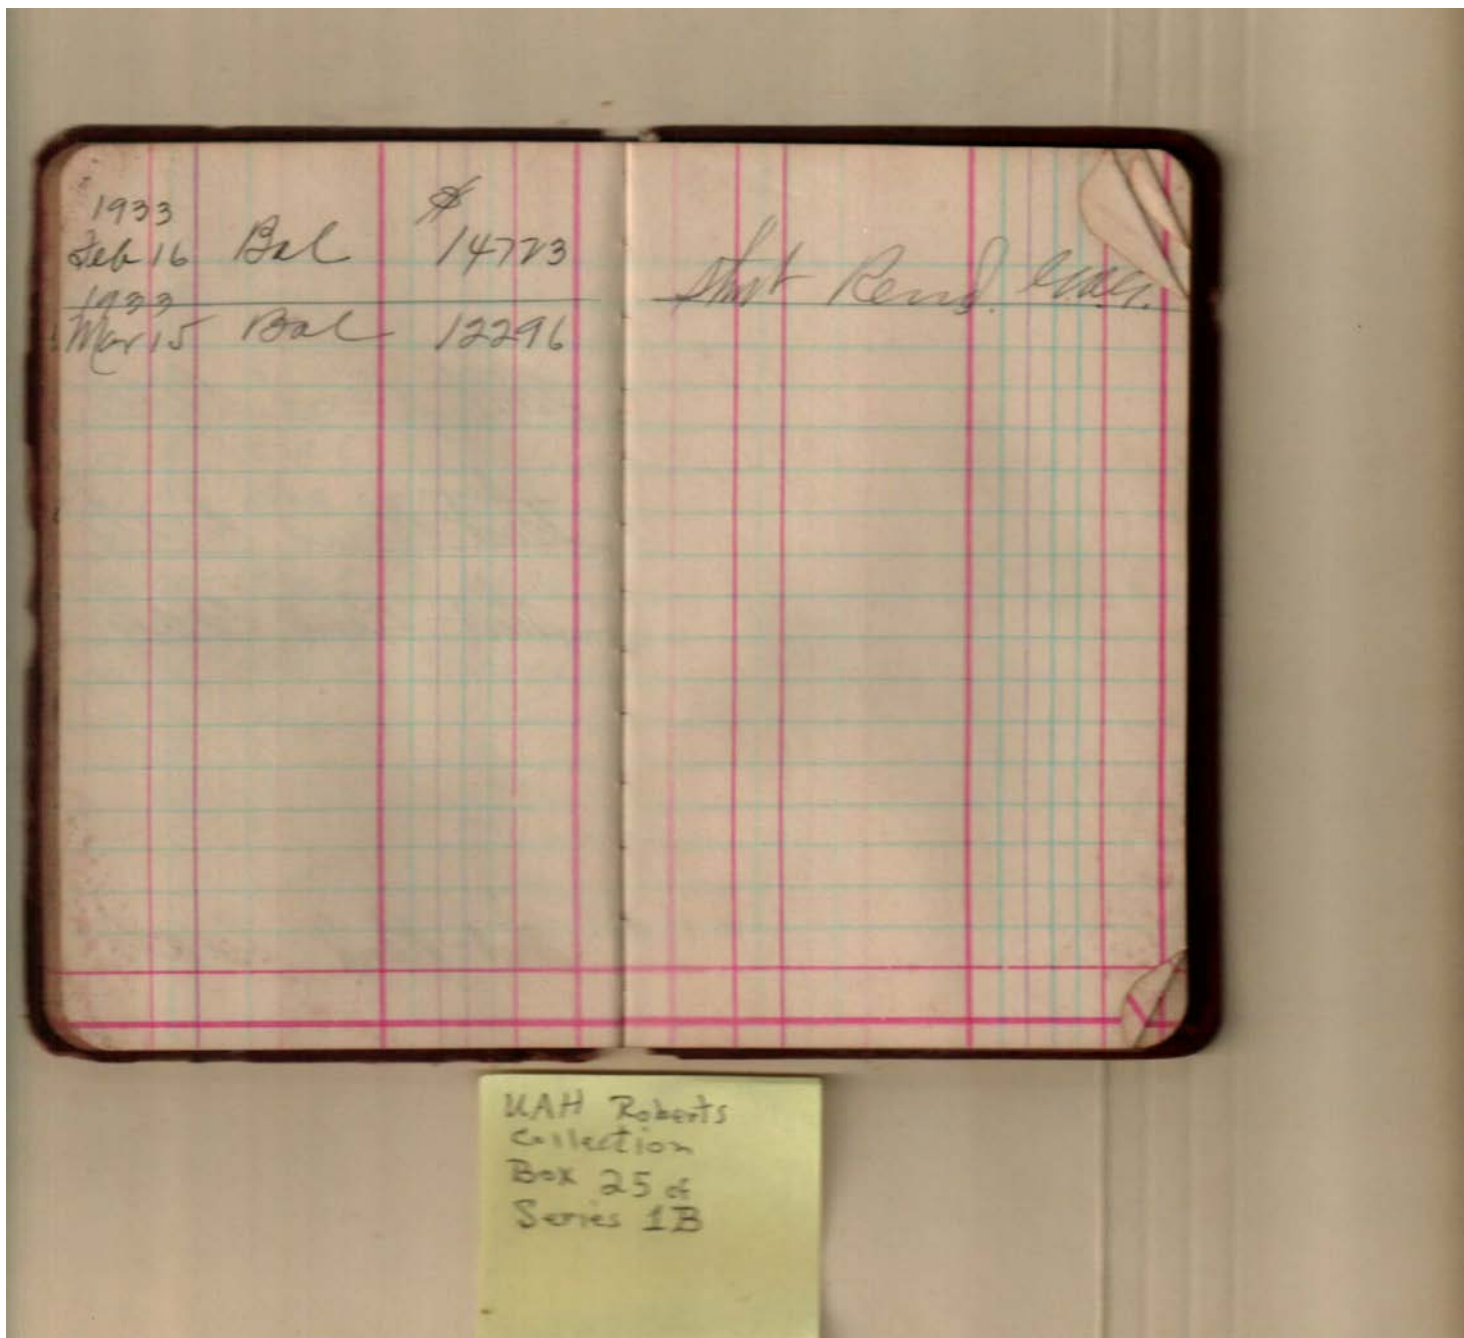 1933
$
Feb 16 Bal 14723
1933
Mar 15 Bal 12296
Stmt Rend.
UAH Roberts
Collection
Box 25 of
Series 1B